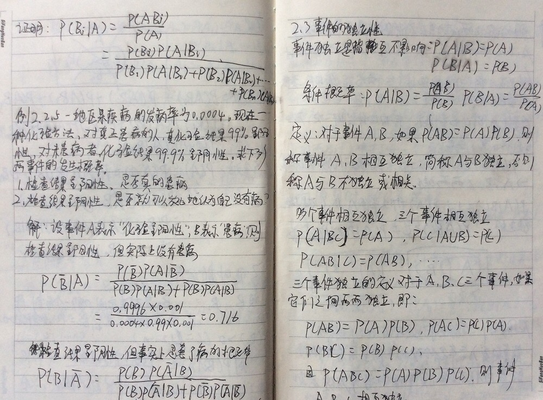 证明: P(Bi|A) = P(ABi) / P(A)
= P(Bi) P(A|Bi) / P(B1)P(A|B1)+P(B2)P(A|B2)+...
例2.2.5 一地区某疾病的发病率为0.0004. 现在一
种化验方法, 对真正患病的人, 其化验结果99%呈阳
性, 对未患病者, 化验结果99.9%呈阴性. 求下列
两事件的发生概率.
1. 检查结果呈阳性, 是否真的患病
2. 检查结果呈阴性, 是否
解: 设事件A表示"化验呈阳性", B表示"患病". 则
检查结果呈阳性, 但实际上没有患病
P(B̄|A) = P(B̄)P(A|B̄) / P(B)P(A|B)+P(B̄)P(A|B̄)
= 0.9996×0.001 / 0.0004×0.99+ ≈0.716
检查结果呈阴性, 但事实上患了病的概率
P(B|Ā) = P(B) P(Ā|B) / P(B)P(Ā|B)+P(B̄)P(Ā|B̄)
2.) 事件的独立性
事件独立是指相互不影响: P(A|B)=P(A)
P(B|A)=P(B)
条件概率: P(A|B)= P(AB)/P(B) P(B|A)= P(AB)/P(A)
定义: 对于事件A、B, 如果P(AB)=P(A)P(B), 则
称事件A、B相互独立, 简称A与B独立, 否则
称A与B不独立或相依.
多个事件相互独立 三个事件相互独立
P(A|BC)=P(A), P(C|A∪B)=P(C)
P(AB|C)=P(AB), ...
三个事件独立的定义 对于A、B、C三个事件, 如果
它们之间两两独立, 即:
P(AB)=P(A)P(B), P(AC)=P(A)P(C)
P(BC)=P(B)P(C).
且 P(ABC)=P(A)P(B)P(C), 则事件
A、B、C 相互独立